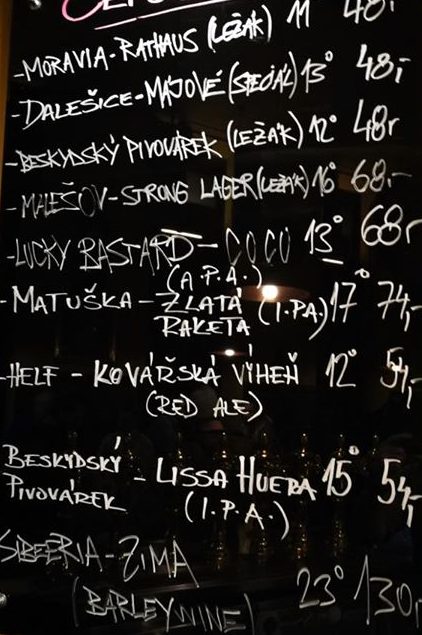 -MORAVIA-RATHAUS (LEŽÁK) 11 48,-
-DALEŠICE-MÁJOVÉ (SPECIÁL) 13° 48,-
-BESKYDSKÝ PIVOVÁREK (LEŽÁK) 12° 48,-
-MALEŠOV-STRONG LAGER (LEŽÁK) 16° 68,-
-LUCKY BASTARD - COCO 13° 68,-
(A.P.A.)
-MATUŠKA - ZLATÁ RAKETA (I.PA) 17° 74,-
-HELF - KOVÁŘSKÁ VÍHEŇ 12° 54,-
(RED ALE)
BESKYDSKÝ PIVOVÁREK - LISSA HUERA 15° 54,-
(I.P.A.)
SIBEERIA-ZIMA
(BARLEYWINE) 23° 130,-